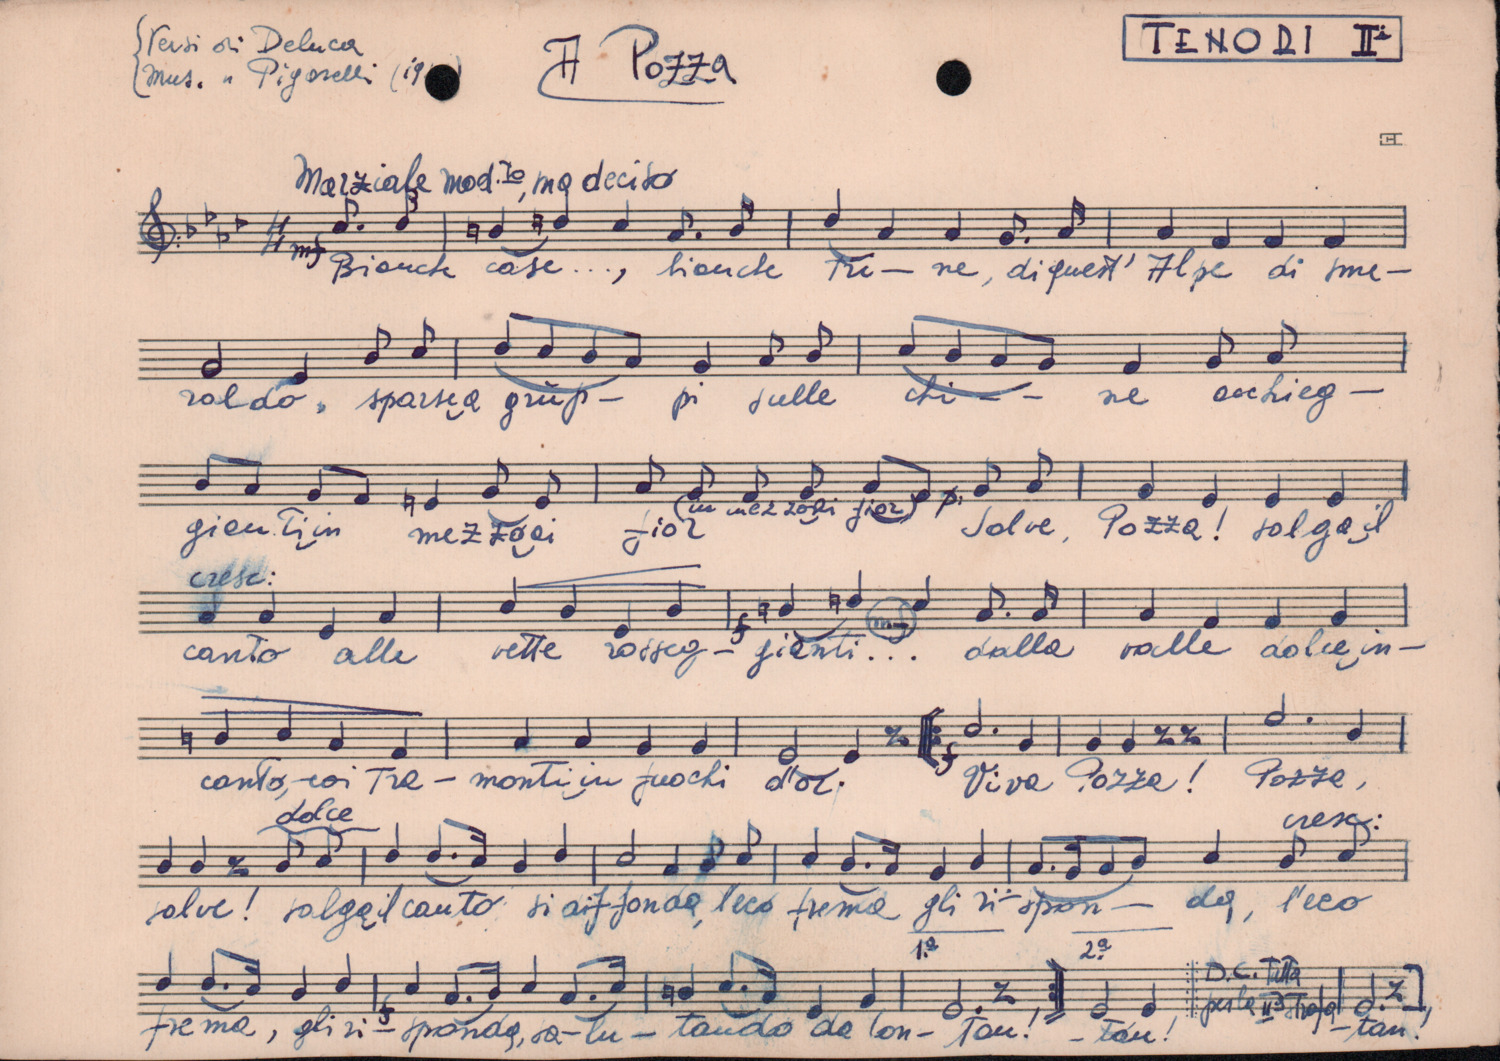 Versi di Deluca
Mus. " Pigarelli (19
A Pozza
TENORI IIi
Marziale mod.to, ma deciso
mf
Bianche case..., bianche tri- ne, di quest' Alpe di sme-
raldo, sparse a grup- pi sulle chi-- ne occhieg-
gianti in mezzo ai fior (in mezzo ai fior) p. Salve, Pozza! salga il
cresc:
canto alle vette rosseg- gianti... dalla valle dolce in-
f
canto, coi tra- monti in fuochi d'or. Viva Pozza! Pozza,
f
dolce
cresc:
salve! salga il canto si diffonda, l'eco frema gli ri- spon- da, l'eco
1.a 2.a
D.C. Tutta
per la IIa Strofa
f
frema, gli ri- sponda, sa-lu- tando da lon- tan! - tan! - tan!